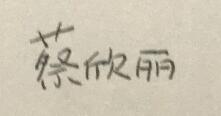 蔡欣丽